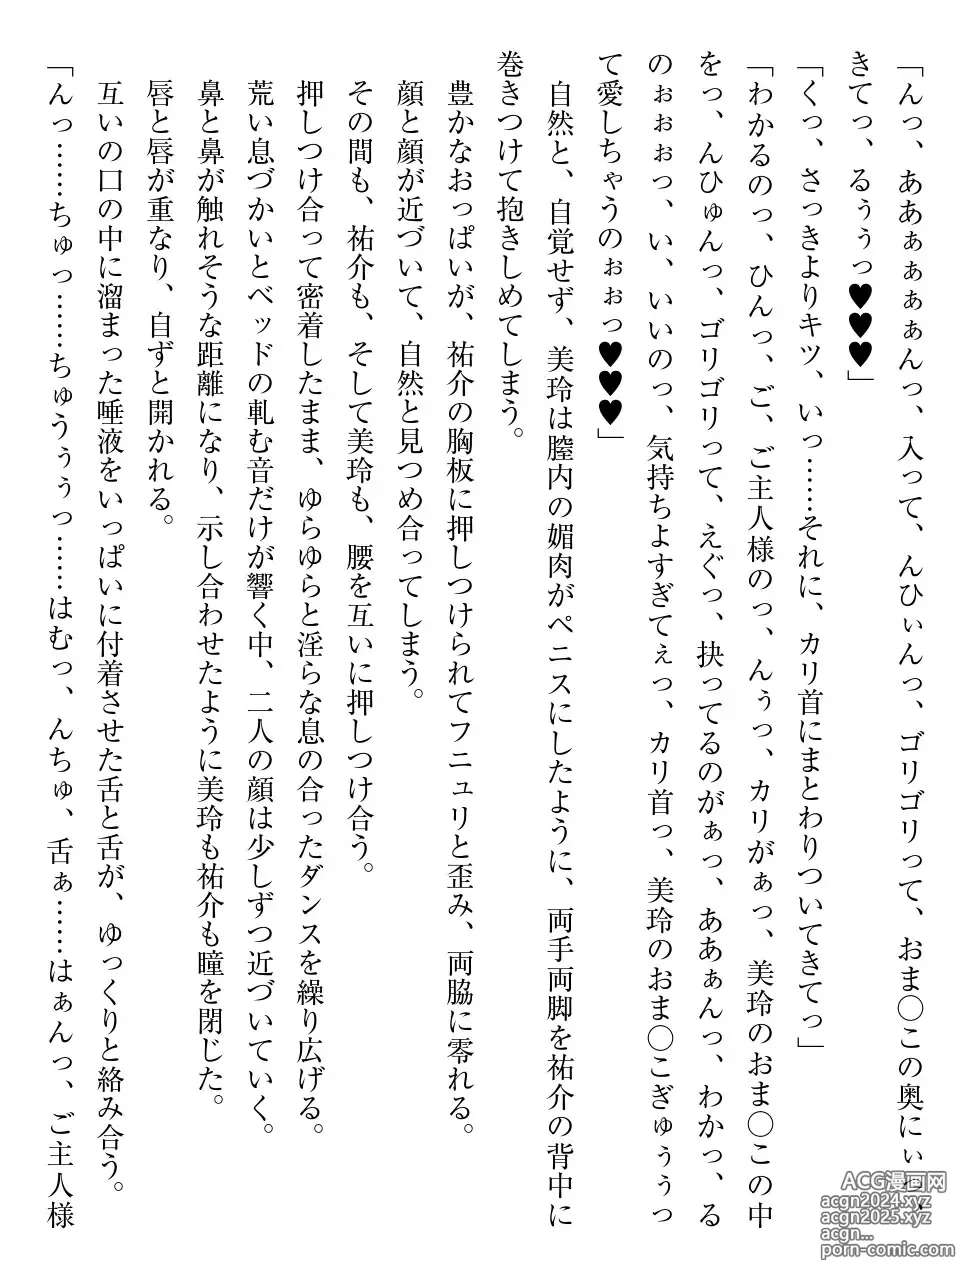 「んっ、あぁぁぁぁんっ、入って、んひぃんっ、ゴリゴリって、おま◯この奥にぃっ、
きてっ、るぅぅっ♥♥♥」
「くっ、さっきよりキツ、いっ……それに、カリ首にまとわりついてきてっ」
「わかるのっ、ひんっ、ご、ご主人様のっ、んぅっ、カリがぁっ、美玲のおま◯この中
をっ、んひゅんっ、ゴリゴリって、えぐっ、抉ってるのがぁっ、あぁぁんっ、わかっ、る
のぉぉぉっ、い、いいのっ、気持ちよすぎてぇっ、カリ首っ、美玲のおま◯こぎゅぅぅっ
て愛しちゃうのぉぉっ♥♥♥」
自然と、自覚せず、美玲は膣内の媚肉がペニスにしたように、両手両脚を祐介の背中に
巻きつけて抱きしめてしまう。
豊かなおっぱいが、祐介の胸板に押しつけられてフニュリと歪み、両脇に零れる。
顔と顔が近づいて、自然と見つめ合ってしまう。
その間も、祐介も、そして美玲も、腰を互いに押しつけ合う。
押しつけ合って密着したまま、ゆらゆらと淫らな息の合ったダンスを繰り広げる。
荒い息づかいとベッドの軋む音だけが響く中、二人の顔は少しずつ近づいていく。
鼻と鼻が触れそうな距離になり、示し合わせたように美玲も祐介も瞳を閉じた。
唇と唇が重なり、自ずと開かれる。
互いの口の中に溜まった唾液をいっぱいに付着させた舌と舌が、ゆっくりと絡み合う。
「んっ……ちゅっ……ちゅうぅぅっ……はむっ、んちゅ、舌ぁ……はぁんっ、ご主人様
ACG漫画网
acgn2024.xyz
acgn2025.xyz
acgn...
porn-comic.com